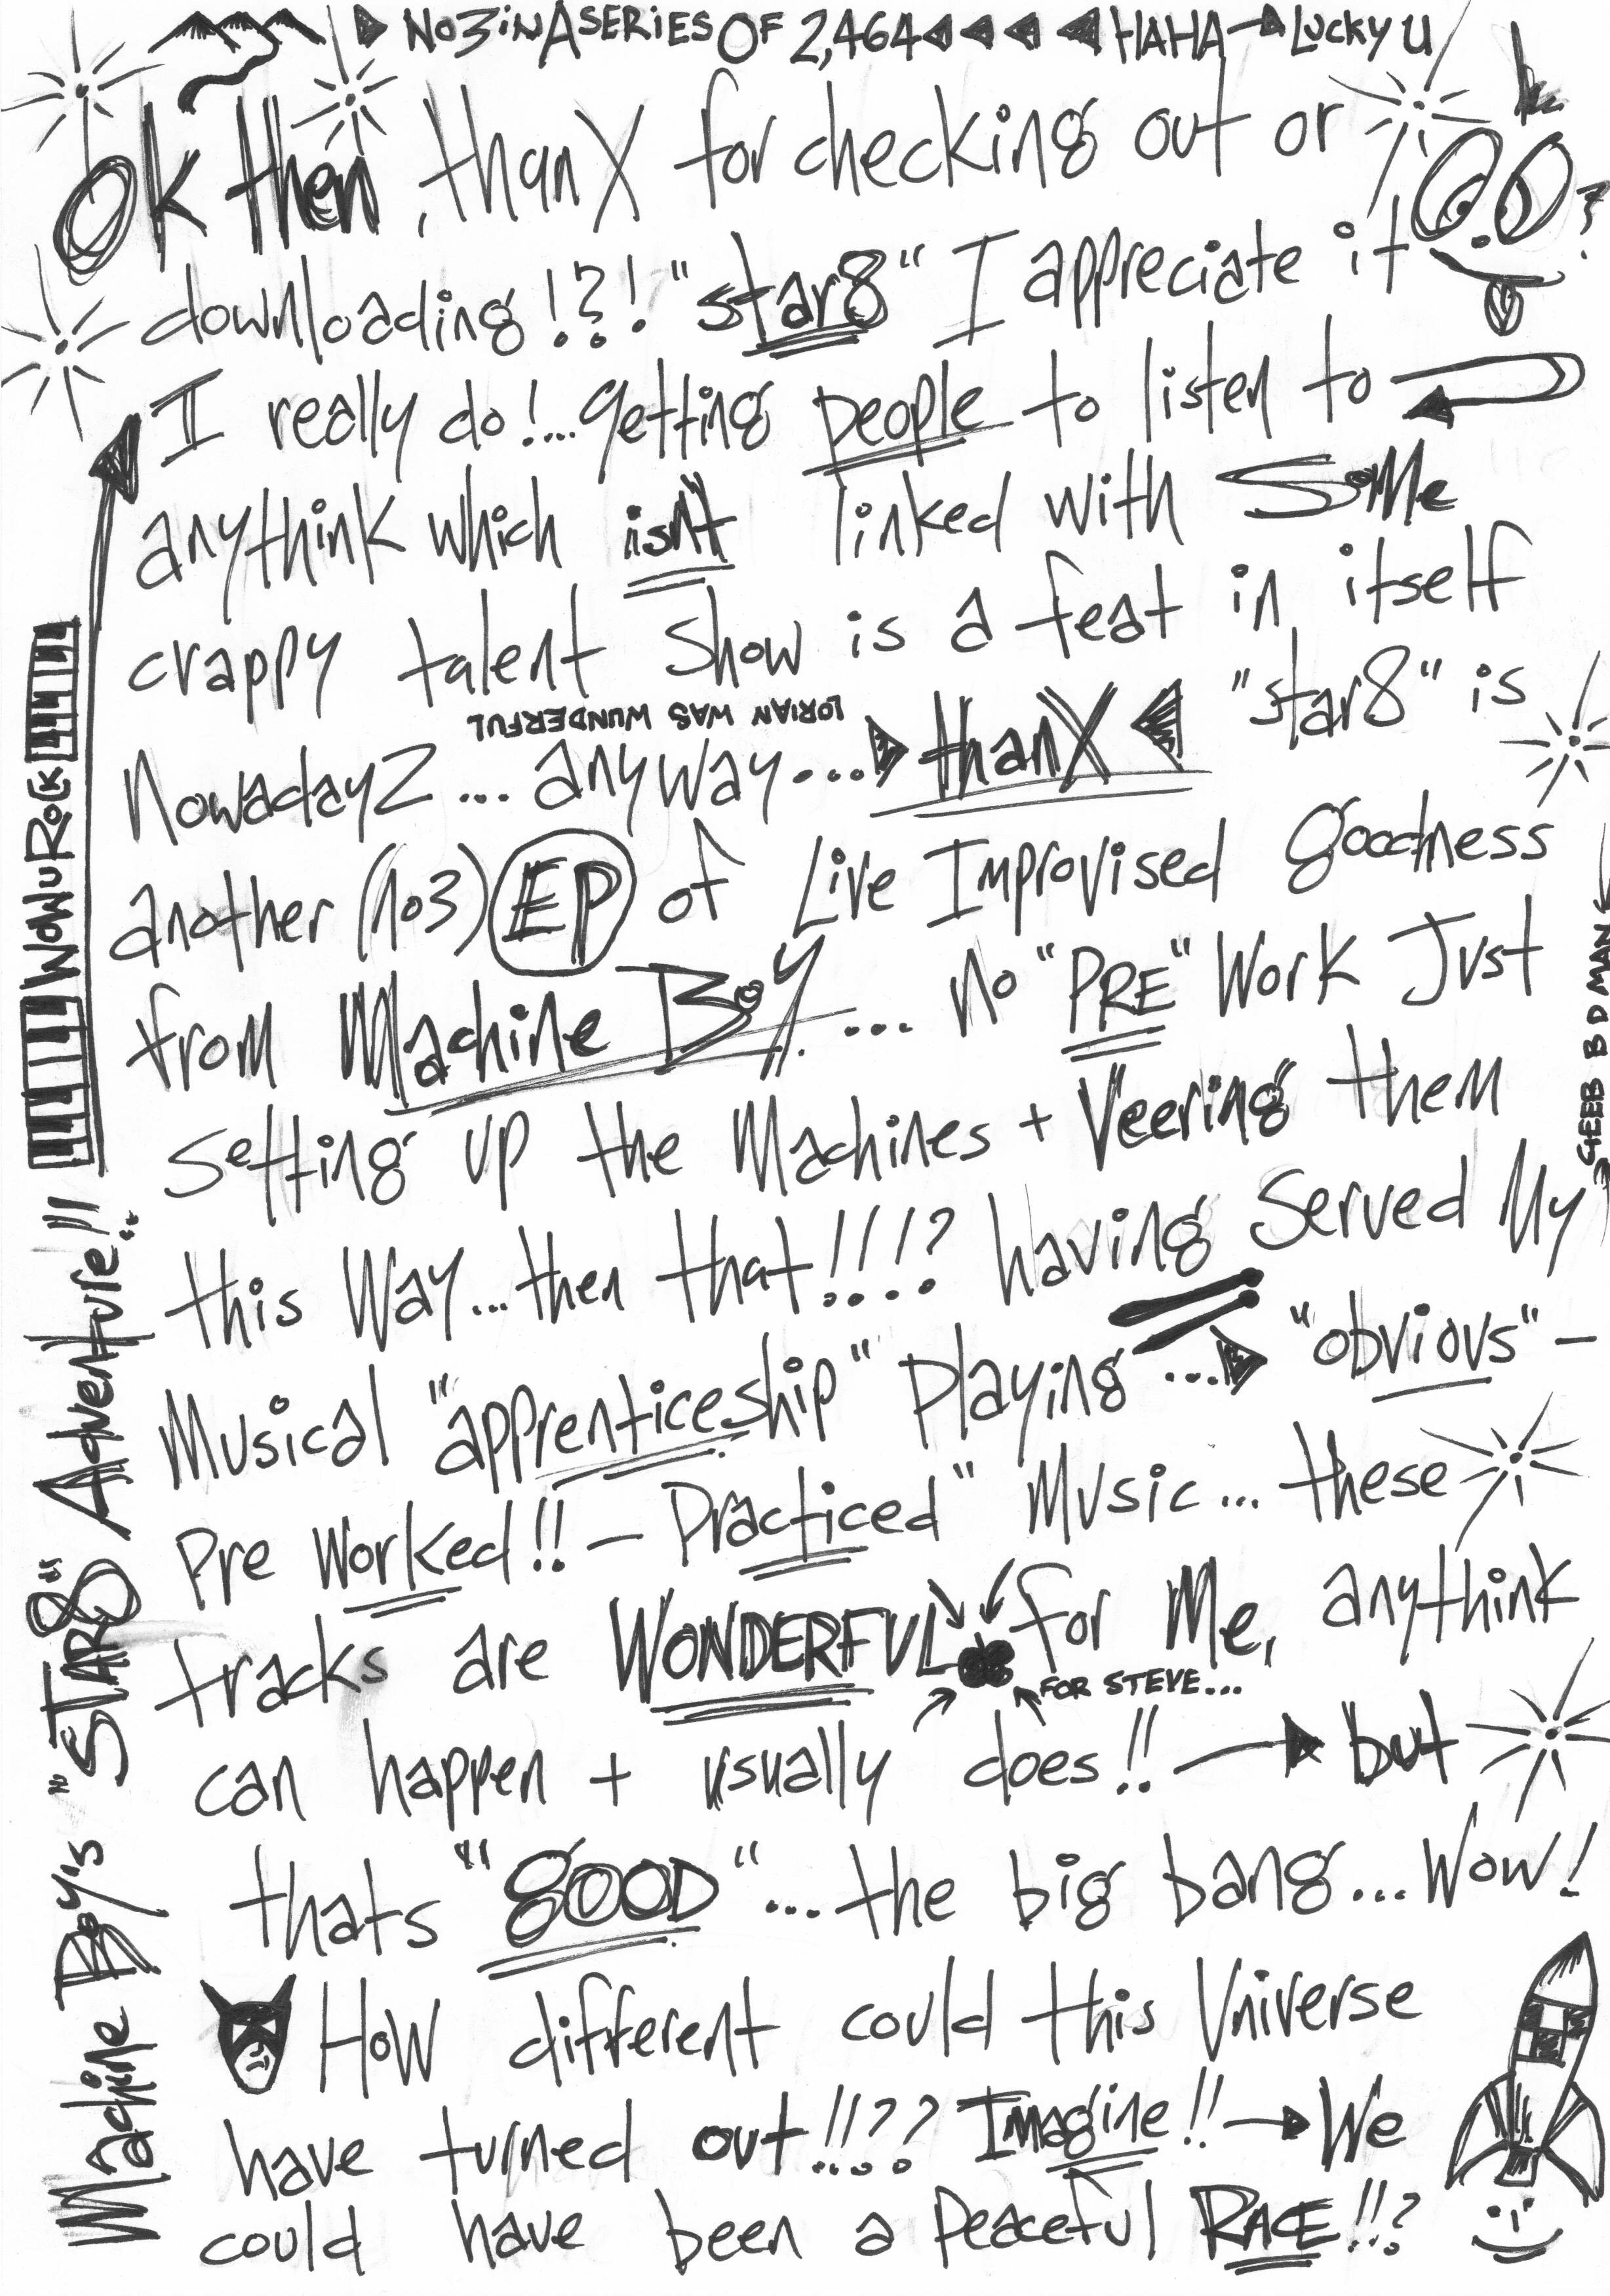 No3 iN A SERiES OF 2,464 HAHA → LUCKY U
OK then, thanX for checking out or
downloading!?! "star8" I appreciate it
I really do!... getting people to listen to
anythink which isn't linked with SOME
crappy talent Show is a feat in itself
LORIAN WAS WUNDERFUL
NowadayZ... anyway.... thanX "star8" is
another (no3) EP of Live Improvised goodness
from Machine Boy... no "PRE" Work Just
setting up the Machines + Veering them
this Way... then that!!!? having Served My
Musical "apprenticeship" Playing ... "obvious" -
Pre Worked!! - Practiced" Music... these
tracks are WONDERFUL for Me, anythink
FOR STEVE...
can happen + usually does!! → but
thats "gOOD"... the big bang... Wow!
HoW different could this Universe
have turned out!!?? Imagine!! → We
could have been a Peaceful RACE!!?
Machine Boy's "STAR8" Adventure!!
WOWUROCK
GEEB B D MAN